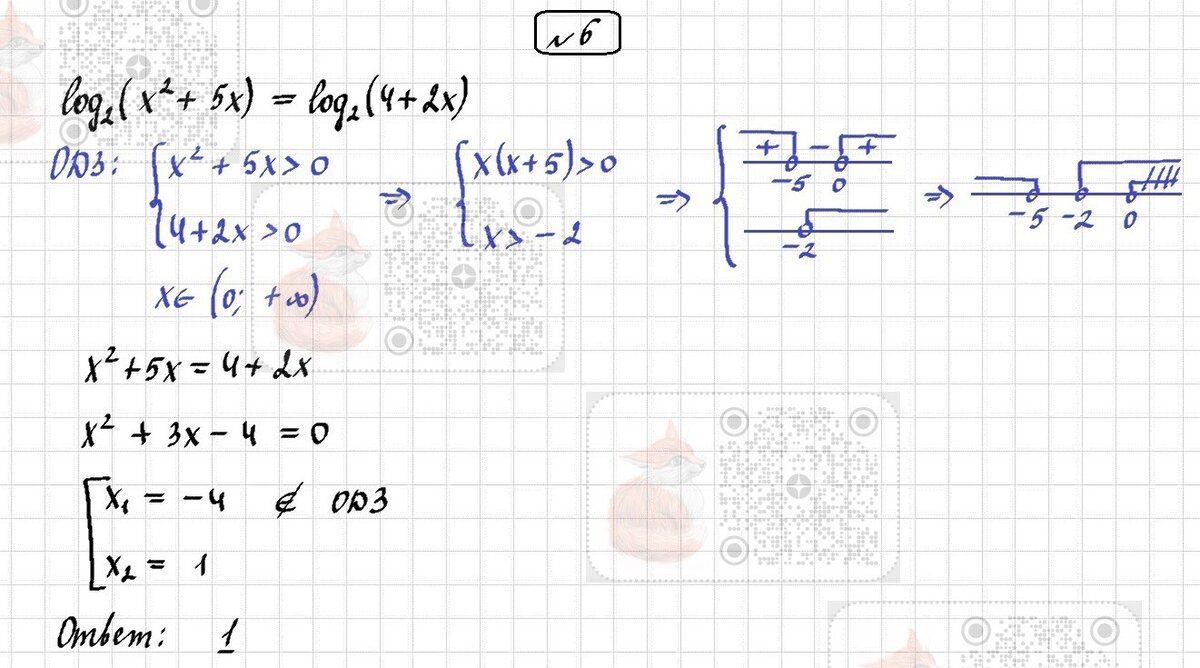 №6
log₂(x² + 5x) = log₂(4+2x)
ОДЗ: { x² + 5x > 0 ; 4+2x > 0 ⇒ { x(x+5) > 0 ; x > -2 ⇒ { + -5 - 0 + ; -2 ⇒ -5 -2 0
x ∈ (0; +∞)
x² + 5x = 4 + 2x
x² + 3x - 4 = 0
[ x₁ = -4 ∉ ОДЗ
x₂ = 1
Ответ: 1